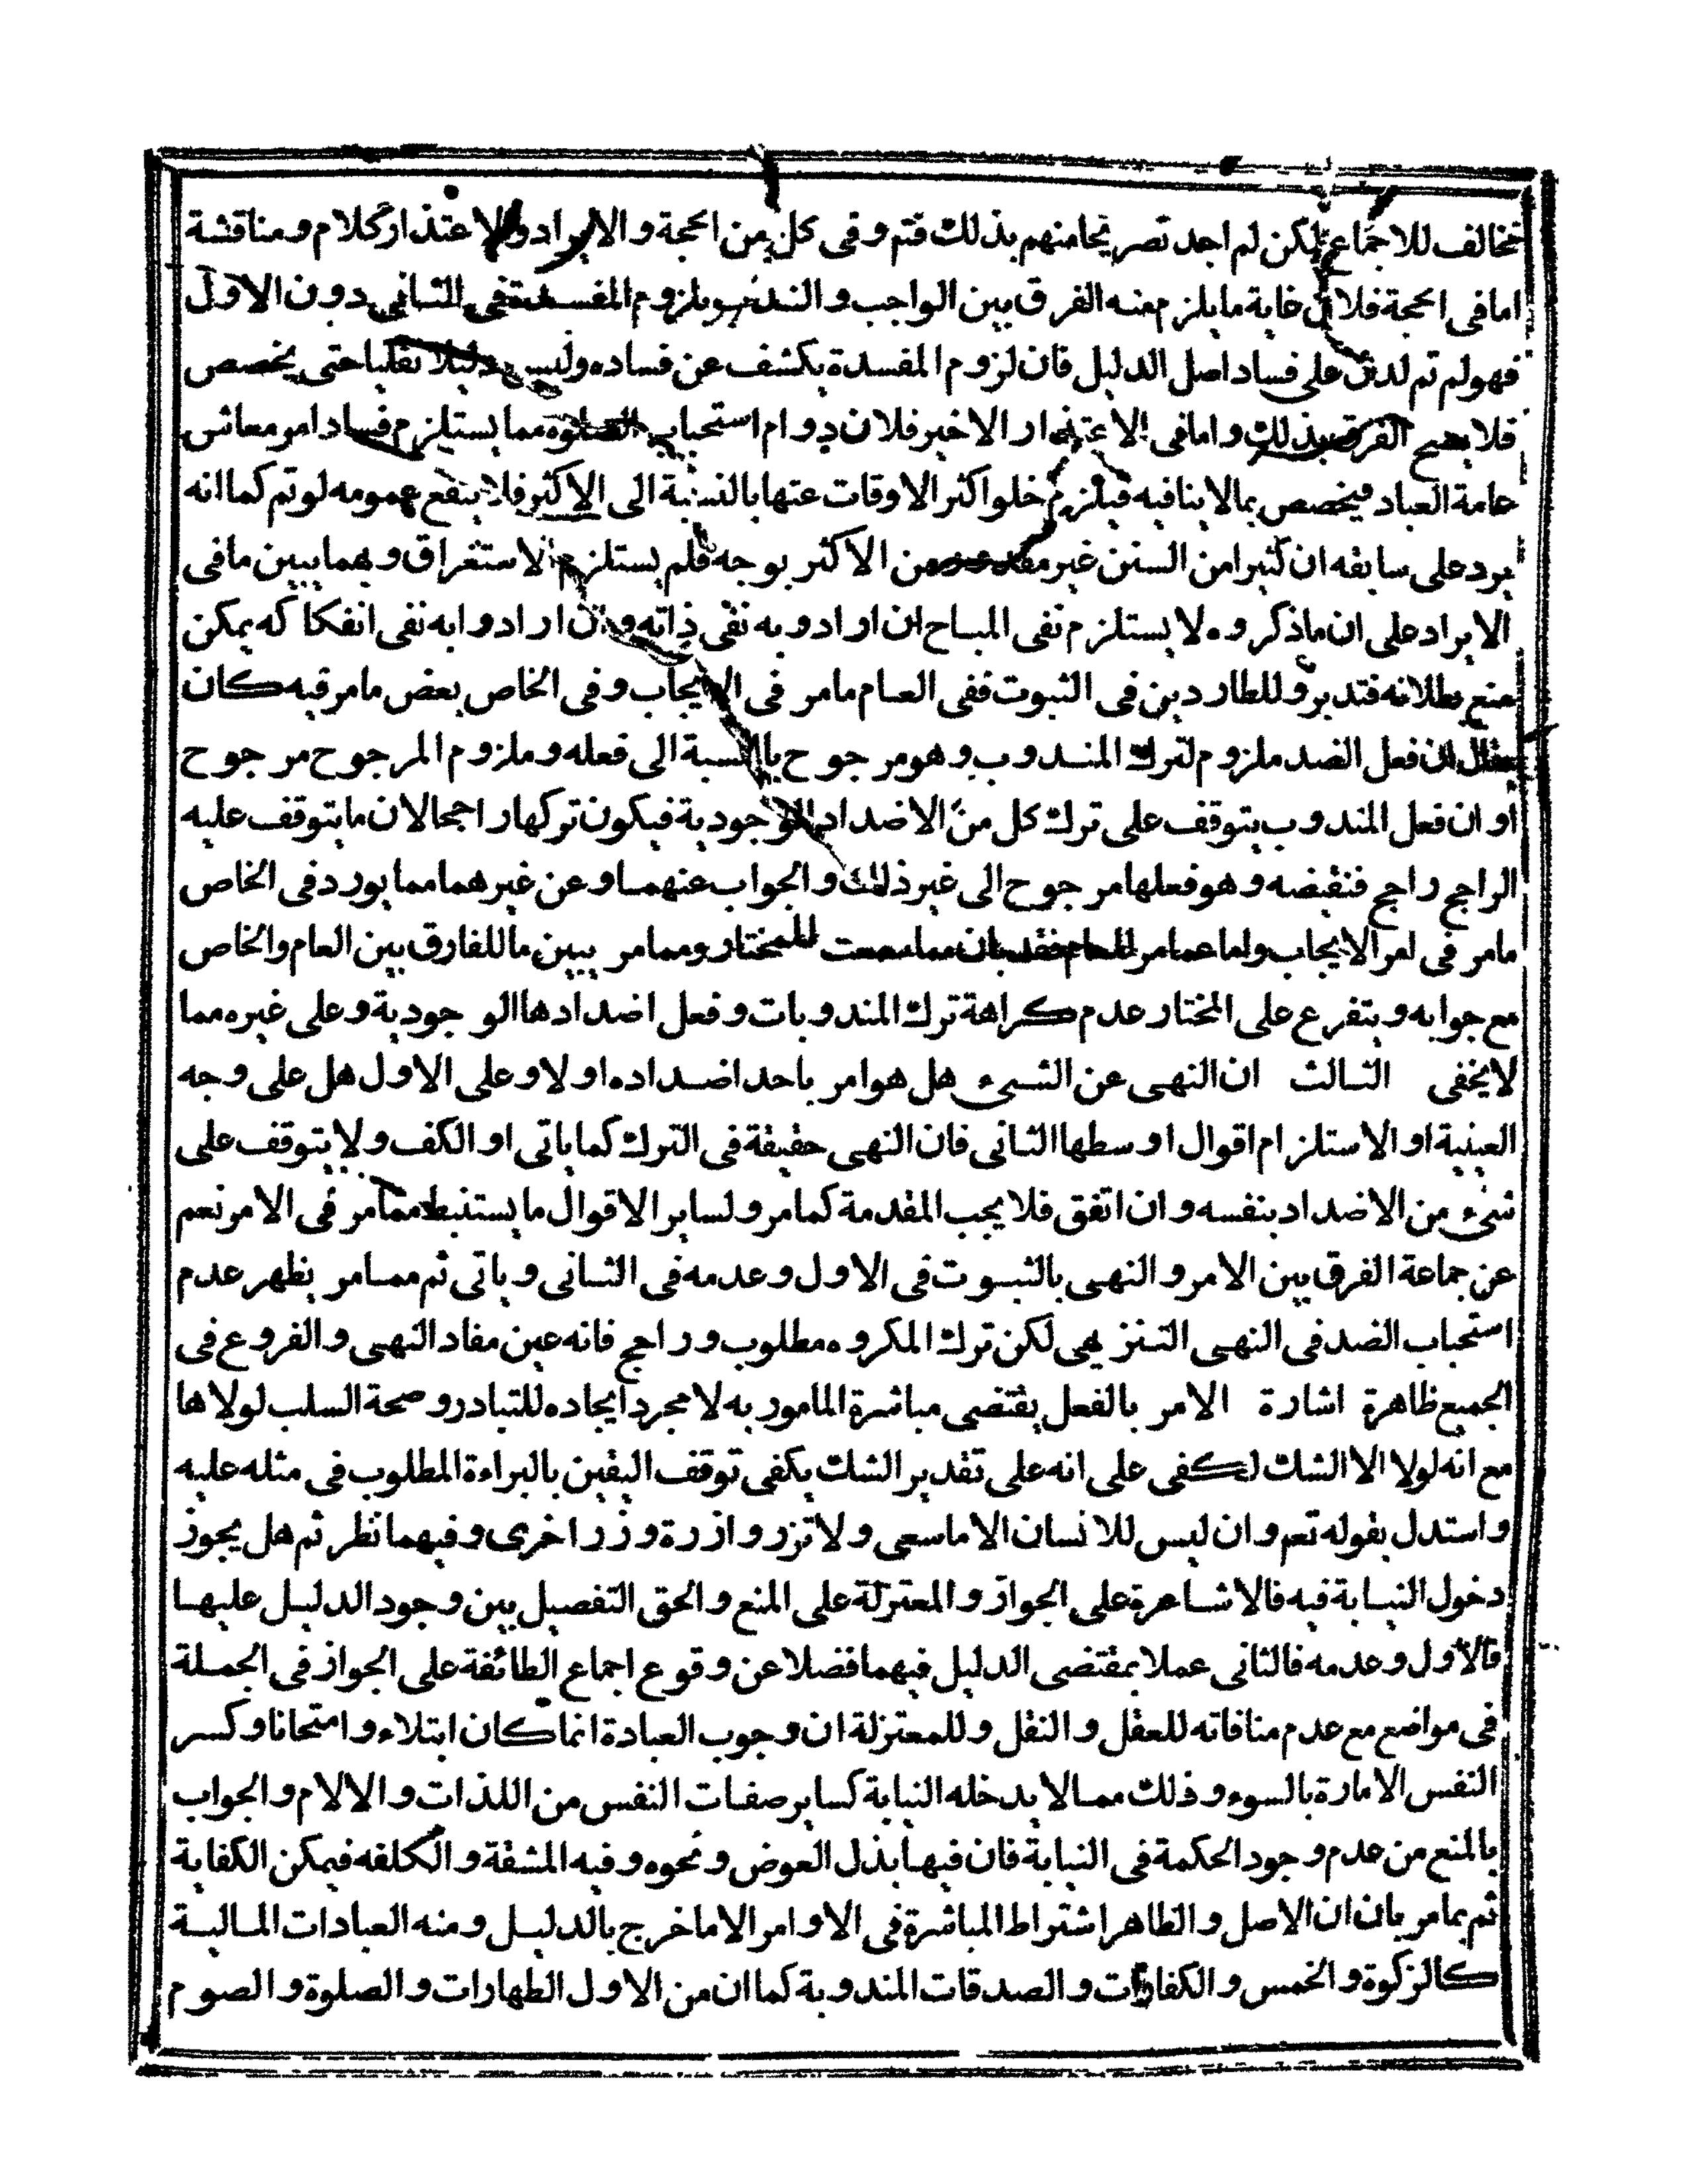 مخالف للاجماع لكن لم اجد تصريحا منهم بذلك فتم وفى كل من الحجة والايراد والاعتذار كلام ومناقشة
اما فى الحجة فلان غاية ما يلزم منه الفرق بين الواجب والندب بلزوم المفسدة فى الثانى دون الاول
فهو لو تم لدل على فساد اصل الدليل فان لزوم المفسدة يكشف عن فساده وليس دليلا نقليا حتى يخصص
فلا يصح الفرق بذلك واما فى الاعتذار الاخير فلان دوام استحباب الصلوة مما يستلزم فساد امر معاش
عامة العباد فيخصص بما لا ينافيه فيلزم خلو اكثر الاوقات عنها بالنسبة الى الاكثر فلا ينفع عمومه لو تم كما انه
يرد على سابقه ان كثيرا من السنن غير من الاكثر بوجه فلم يستلزم الاستغراق وبهما يبين ما فى
الايراد على ان ما ذكروه لا يستلزم نفى المباح ان ارادوبه نفى ذاته وان ارادوا به نفى انفكاكه يمكن
منع بطلانه فتدبر وللطاردين فى الثبوت ففى العام ما مر فى الايجاب وفى الخاص بعض ما مر فيه كان
يقال ان فعل الضد ملزوم لترك المندوب وهو مرجوح بالنسبة الى فعله وملزوم المرجوح مرجوح
او ان فعل المندوب يتوقف على ترك كل من الاضداد الوجودية فيكون تركها راجحا لان ما يتوقف عليه
الراجح راجح فنقيضه وهو فعلها مرجوح الى غير ذلك والجواب عنهما وعن غيرهما مما يورد فى الخاص
مامر فى امر الايجاب واما عما مر للعام فقد بان مما سمعت للمختار ومما مر يبين ما للفارق بين العام والخاص
مع جوابه ويتفرع على المختار عدم كراهة ترك المندوبات وفعل اضدادها الوجودية وعلى غيره مما
لا يخفى الثالث ان النهى عن الشىء هل هو امر باحد اضداده او لا وعلى الاول هل على وجه
العينية او الاستلزام اقوال اوسطها الثانى فان النهى حقيقة فى الترك كما ياتى او الكف ولا يتوقف على
شىء من الاضداد بنفسه وان اتفق فلا يجب المقدمة كما مر ولساير الاقوال ما يستنبط مما مر فى الامر نعم
عن جماعة الفرق بين الامر والنهى بالثبوت فى الاول وعدمه فى الثانى وياتى ثم مما مر يظهر عدم
استحباب الضد فى النهى التنزيهى لكن ترك المكروه مطلوب وراجح فانه عين مفاد النهى والفروع فى
الجميع ظاهرة اشارة الامر بالفعل يقتضى مباشرة المامور به لا مجرد ايجاده للتبادر وصحة السلب لولاها
مع انه لولا الا الشك لكفى على انه على تقدير الشك يكفى توقف اليقين بالبراءة المطلوب فى مثله عليه
واستدل بقوله تعم وان ليس للانسان الا ما سعى ولا تزر وازرة وزر اخرى وفيهما نظر ثم هل يجوز
دخول النيابة فيه فالاشاعرة على الجواز والمعتزلة على المنع والحق التفصيل بين وجود الدليل عليها
فالاول وعدمه فالثانى عملا بمقتضى الدليل فيهما فضلا عن وقوع اجماع الطائفة على الجواز فى الجملة
فى مواضع مع عدم منافاته للعقل والنقل وللمعتزلة ان وجوب العبادة انما كان ابتلاء وامتحانا وكسر
النفس الامارة بالسوء وذلك مما لا يدخله النيابة كساير صفات النفس من اللذات والالام والجواب
بالمنع من عدم وجود الحكمة فى النيابة فان فيها بذل العوض ونحوه وفيه المشقة والكلفه فيمكن الكفاية
ثم بما مر بان ان الاصل والظاهر اشتراط المباشرة فى الاوامر الا ما خرج بالدليل ومنه العبادات المالية
كالزكوة والخمس والكفارات والصدقات المندوبة كما ان من الاول الطهارات والصلوة والصوم